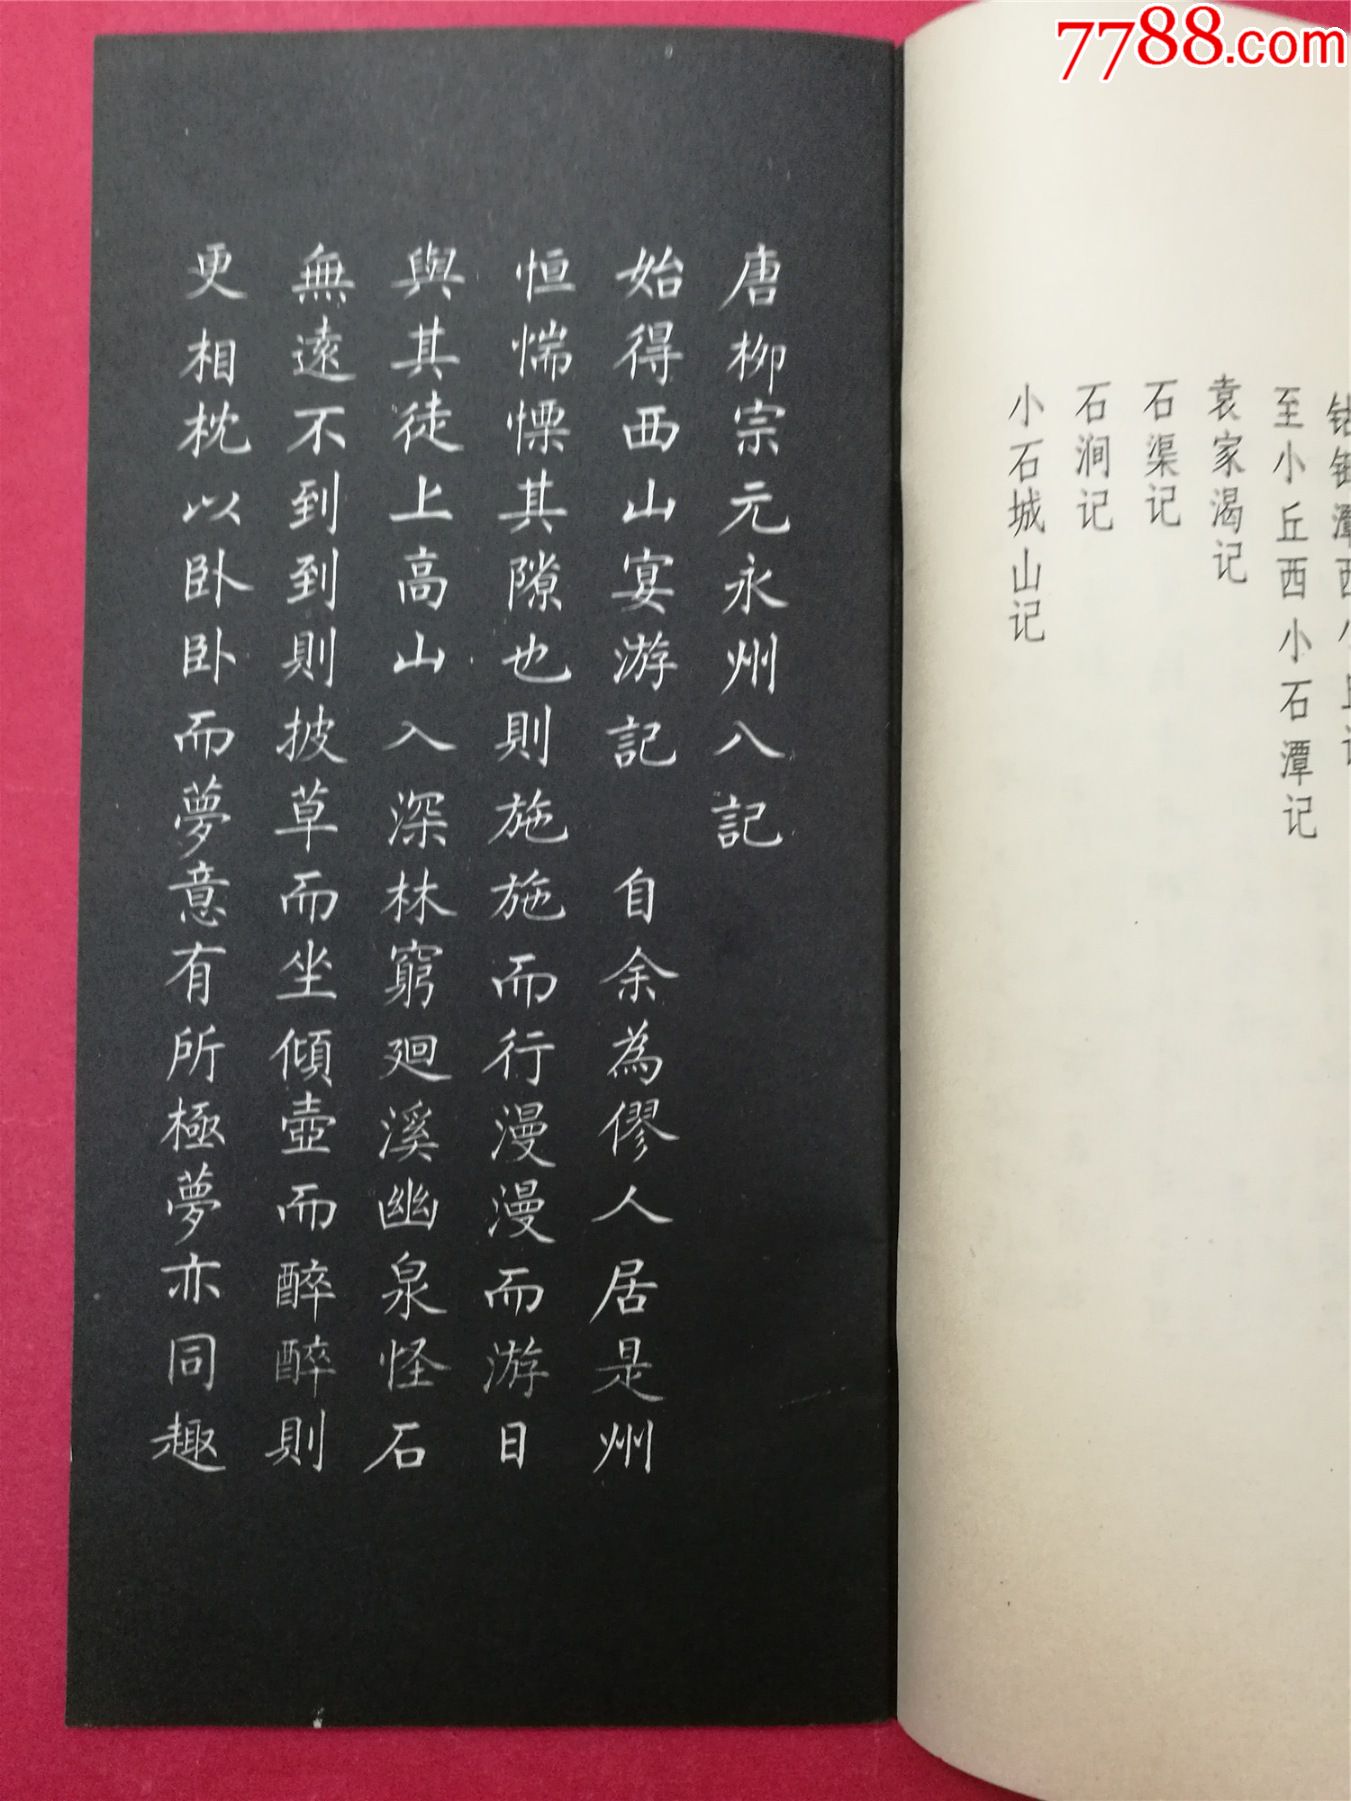 7788.com
钴鉧潭西小丘记
至小丘西小石潭记
袁家渴记
石渠记
石涧记
小石城山记
唐柳宗元永州八記
始得西山宴游記 自余為僇人居是州
恒惴慄其隙也則施施而行漫漫而游日
與其徒上高山入深林窮迴溪幽泉怪石
無遠不到到則披草而坐傾壺而醉醉則
更相枕以卧卧而夢意有所極夢亦同趣